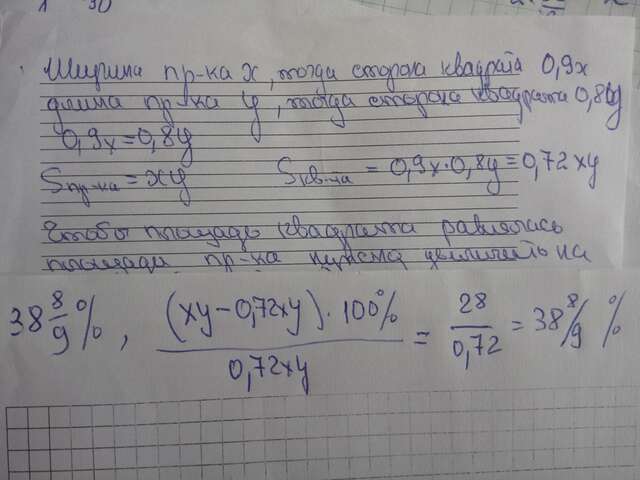 1 30
Ширина пр-ка x, тогда сторона квадрата 0,9x
длина пр-ка y, тогда сторона квадрата 0,8y
0,9x=0,8y
Sпр-ка=xy Sкв-та = 0,9x·0,8y=0,72xy
Чтобы площадь квадрата равнялась
площади пр-ка нужно увеличить на
38 8/9 %, (xy-0,72xy)·100% / 0,72xy = 28/0,72 = 38 8/9 %